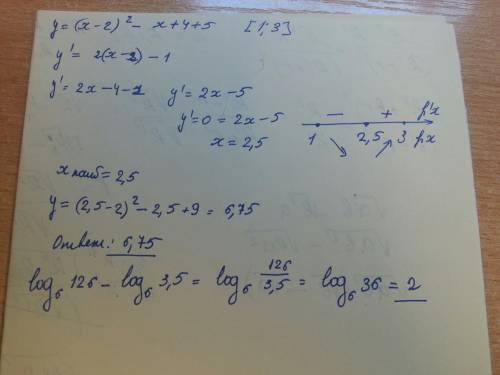 y = (x-2)² - x+4+5 [1;3]
y' = 2(x-2) - 1
y' = 2x-4-1 y' = 2x-5
y'=0 = 2x-5
x = 2,5
- + f'x
1 2,5 3 fx
x наиб = 2,5
y = (2,5-2)² - 2,5+9 = 6,75
Ответ: 6,75
log₆ 126 - log₆ 3,5 = log₆ 126/3,5 = log₆ 36 = 2